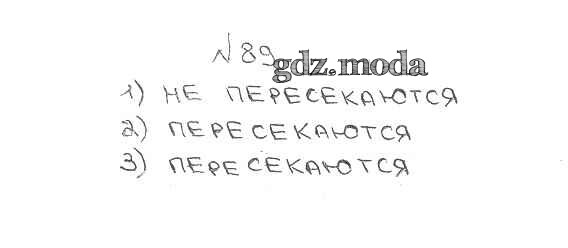 № 89
gdz.moda
1) НЕ ПЕРЕСЕКАЮТСЯ
2) ПЕРЕСЕКАЮТСЯ
3) ПЕРЕСЕКАЮТСЯ